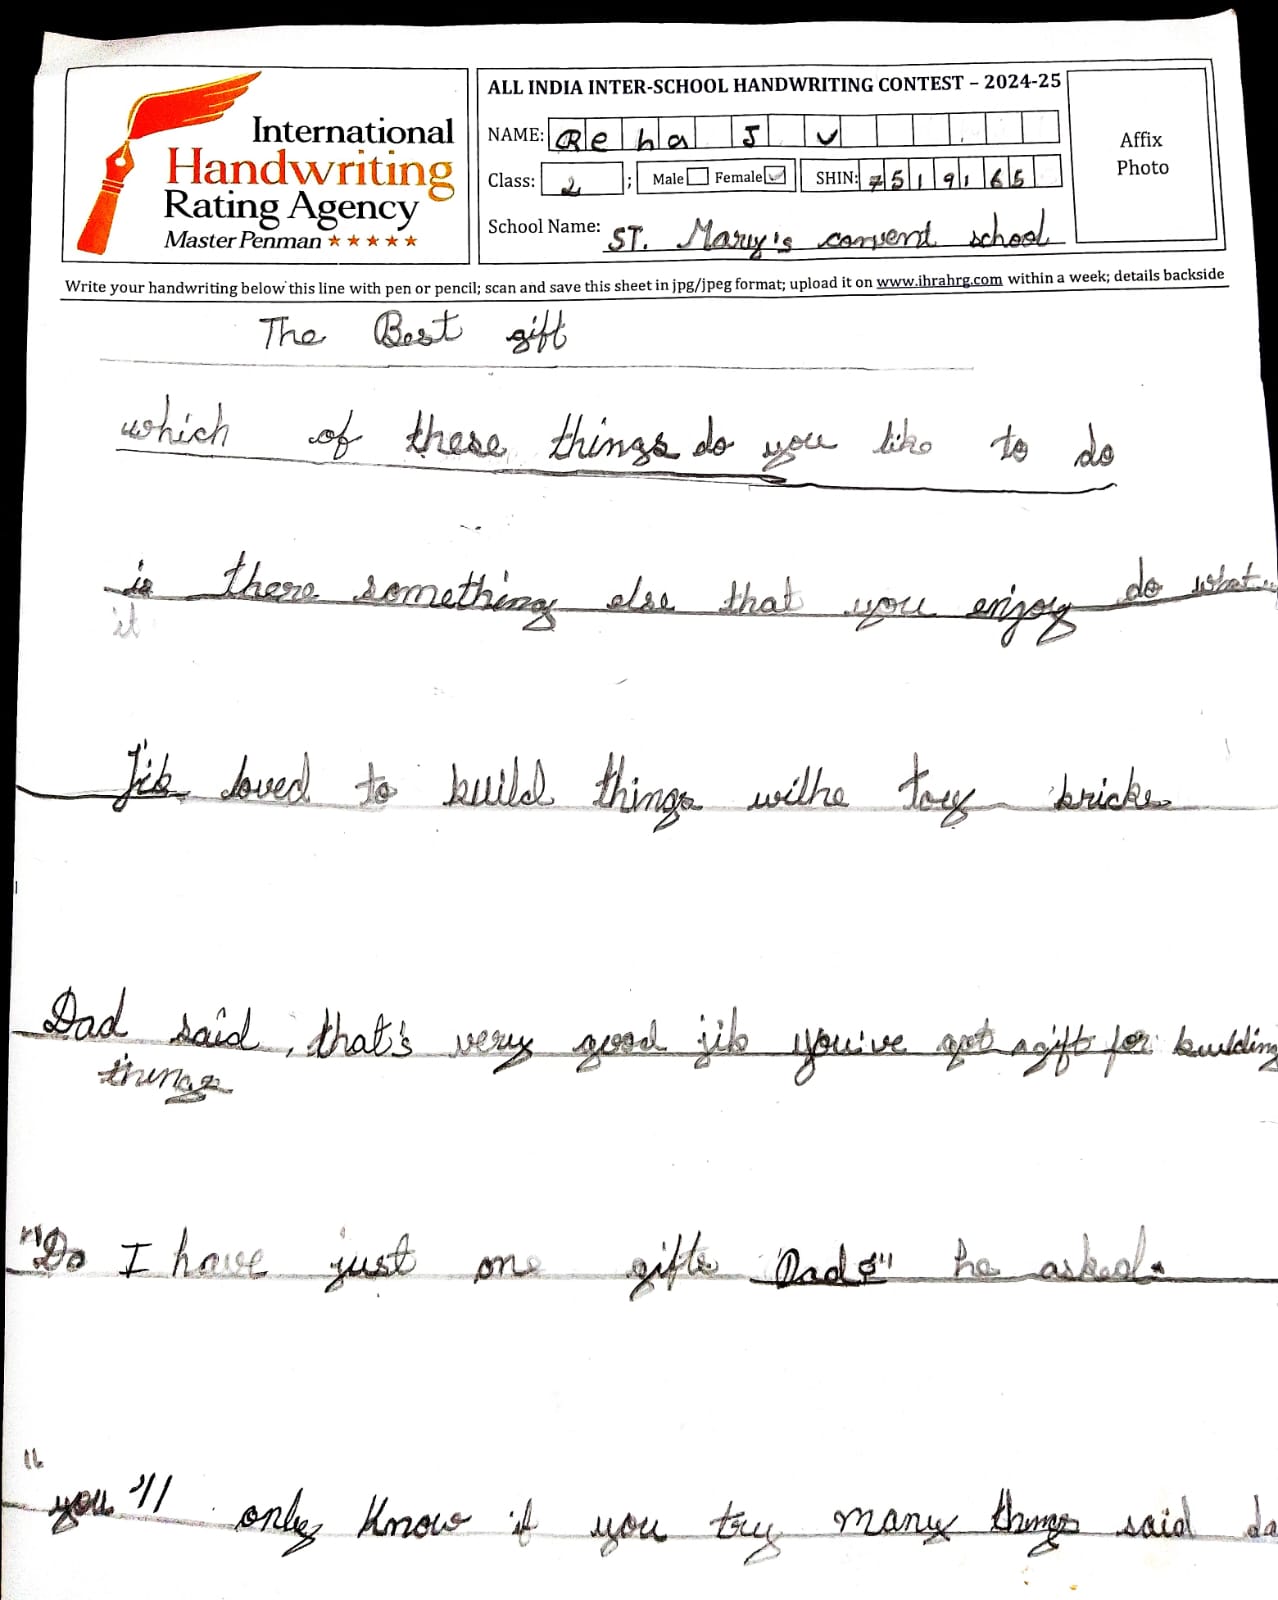 International
Handwriting
Rating Agency
Master Penman ★★★★★
ALL INDIA INTER-SCHOOL HANDWRITING CONTEST – 2024-25
NAME: Reha J V
Class: 2 ; Male Female SHIN: 7519165
School Name: ST. Mary's convend school
Affix
Photo
Write your handwriting below this line with pen or pencil; scan and save this sheet in jpg/jpeg format; upload it on www.ihrahrg.com within a week; details backside
The Best gift
which of these things do you like to do
is there something else that you enjoy do what
it
Jib loved to build things withe toy bricks
Dad said, that's very good jib you've got a gift for building
things
"Do I have just one gifts Dad" he asked.
"you'll only know if you try many things said da